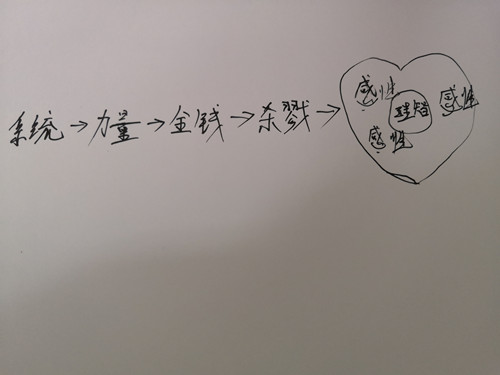 系统→力量→金钱→杀戮→
感性
理智
感性
感性